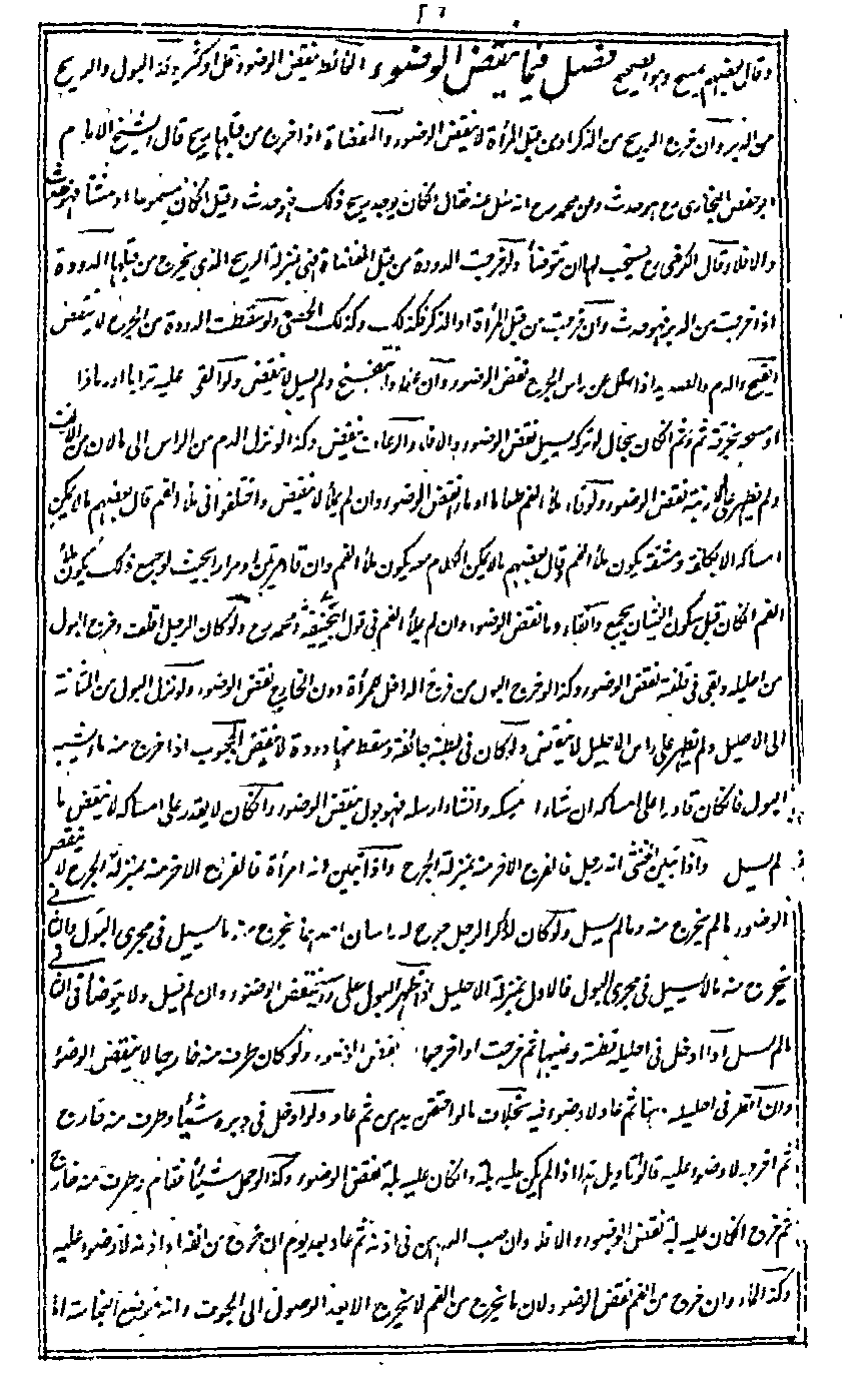 ٢٦
وقال بعضهم يمسح وهو الصحيح فصل فيما ينقض الوضوء الغائط ينقض الوضوء قل او كثر وكذا البول والريح
من الدبر وان خرج الريح من الذكر او من قبل المرأة لا ينقض الوضوء والمفضاة اذا خرج من قبلها ريح قال الشيخ الامام
ابو حفص البخاري رح هو حدث وعن محمد رح انه سئل عنه فقال ان كان يوجد ريح ذلك فهو حدث وقيل ان كان مسموعا او منتنا فهو حدث
والا فلا وقال الكرخي رح يستحب لها ان تتوضأ ولو خرجت الدودة من قبل المفضاة فهي بمنزلة الريح الذي يخرج من قبلها الدودة
اذا خرجت من الدبر فهو حدث وان خرجت من قبل المرأة او الذكر فكذلك وكذلك الحصى ولو سقطت الدودة من الجرح لا ينقض
القيح والدم والصديد اذا سال عن راس الجرح نقض الوضوء وان علا وانتفخ ولم يسل لا ينقض ولو القى عليه ترابا او رمادا
او مسحه بخرقة ثم وثم ان كان بحال لو تركه يسيل نقض الوضوء والا فلا والرعاف ينقض وكذا لو نزل الدم من الراس الى ما لان من الانف
ولم يظهر على الارنبة نقض الوضوء ولو قاء ملأ الفم طعاما او ماء نقض الوضوء وان لم يملأ لا ينقض واختلفوا في ملأ الفم قال بعضهم ما لا يمكن
امساكه الا بكلفة ومشقة يكون ملأ الفم وقال بعضهم ما لا يمكن الكلام معه يكون ملأ الفم وان قاء مرتين او مرارا بحيث لو جمع ذلك يكون ملأ
الفم ان كان قبل سكون الغثيان يجمع والقاء دما نقض الوضوء وان لم يملأ الفم في قول ابي حنيفة رح ومحمد رح ولو كان الرجل اقلف وخرج البول
من احليله وبقى في قلفته نقض الوضوء وكذا لو خرج البول من فرج الداخل للمرأة دون الخارج نقض الوضوء ولو نزل البول من المثانة
الى الاحليل ولم يظهر على راس الاحليل لا ينقض ولو كان في بطنه جائفة وسقط منها دودة لا ينقض المجبوب اذا خرج منه ما يشبه
البول فان كان قادرا على امساكه ان شاء امسكه وان شاء ارسله فهو بول ينقض الوضوء وان كان لا يقدر على امساكه لا ينقض ما
لم يسل واذا تبين الخنثى انه رجل فالفرج الاخر منه بمنزلة الجرح واذا تبين انه امرأة فالفرج الاخر منه بمنزلة الجرح لا ينقض
الوضوء ما لم يخرج منه وما لم يسل ولو كان لذكر الرجل جرح له راسان احدهما يخرج منه ما يسيل في مجرى البول والثاني
يخرج منه ما لا يسيل في مجرى البول فالاول بمنزلة الاحليل اذا ظهر البول على راسه ينقض الوضوء وان لم يسل ولا يتوضأ في الثاني
ما لم يسل اذا ادخل في احليله قطنة وغيبها ثم خرجت او اخرجها نقض الوضوء ولو كان طرفه منه خارجا لا ينقض الوضوء
وان اقطر في احليله دهنا ثم عاد لا وضوء فيه بخلاف ما لو احتقن بدهن ثم عاد ولو ادخل في دبره شيئا وطرف منه خارج
ثم اخرجه لا وضوء عليه قالوا تاويل هذا اذا لم يكن عليه بلة وان كان عليه بلة نقض الوضوء وكذا لو حمل شيئا فقام وطرف منه خارج
ثم خرج ان كان عليه بلة نقض الوضوء والا فلا وان صب الدهن في اذنه ثم عاد بعد يوم ان خرج من انفه او اذنه لا وضوء عليه
وكذا الماء وان خرج من الفم نقض الوضوء ولان ما يخرج من الفم لا يخرج الا بعد الوصول الى الجوف وانه موضع النجاسة اما